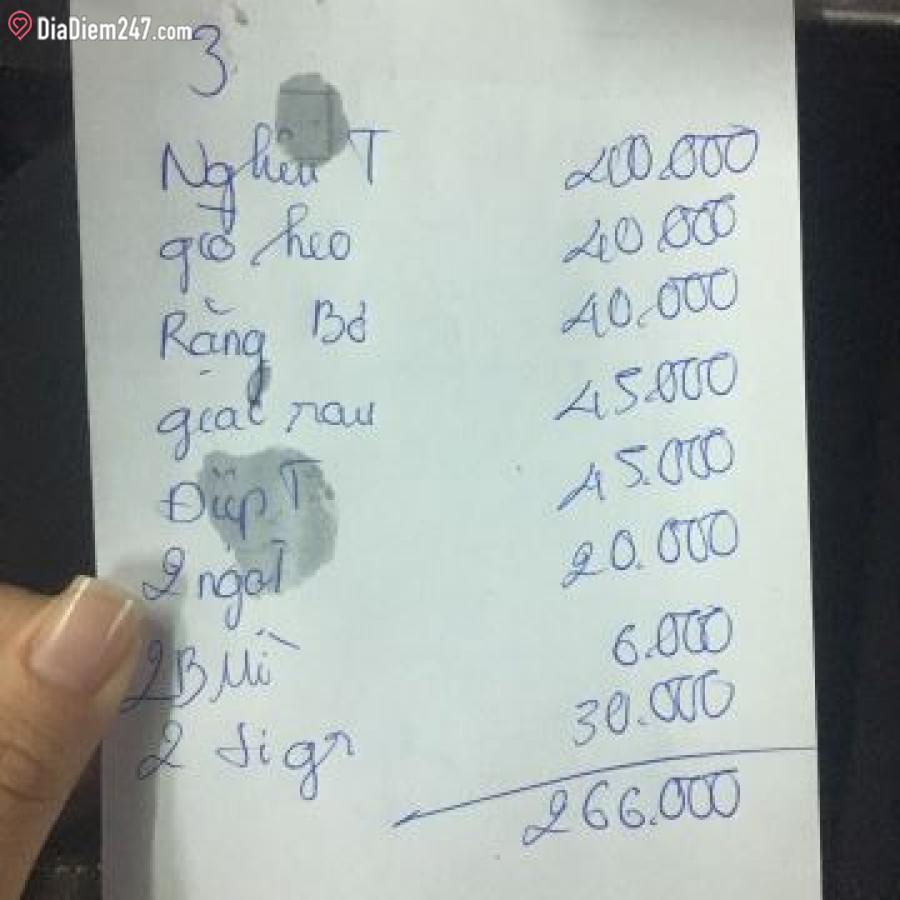 DiaDiem247.com
3
Nghêu T 40.000
giò heo 40.000
Răng Bơ 40.000
rau 45.000
Điệp T 45.000
2 ngọt 20.000
2 B Mì 6.000
2 30.000
266.000